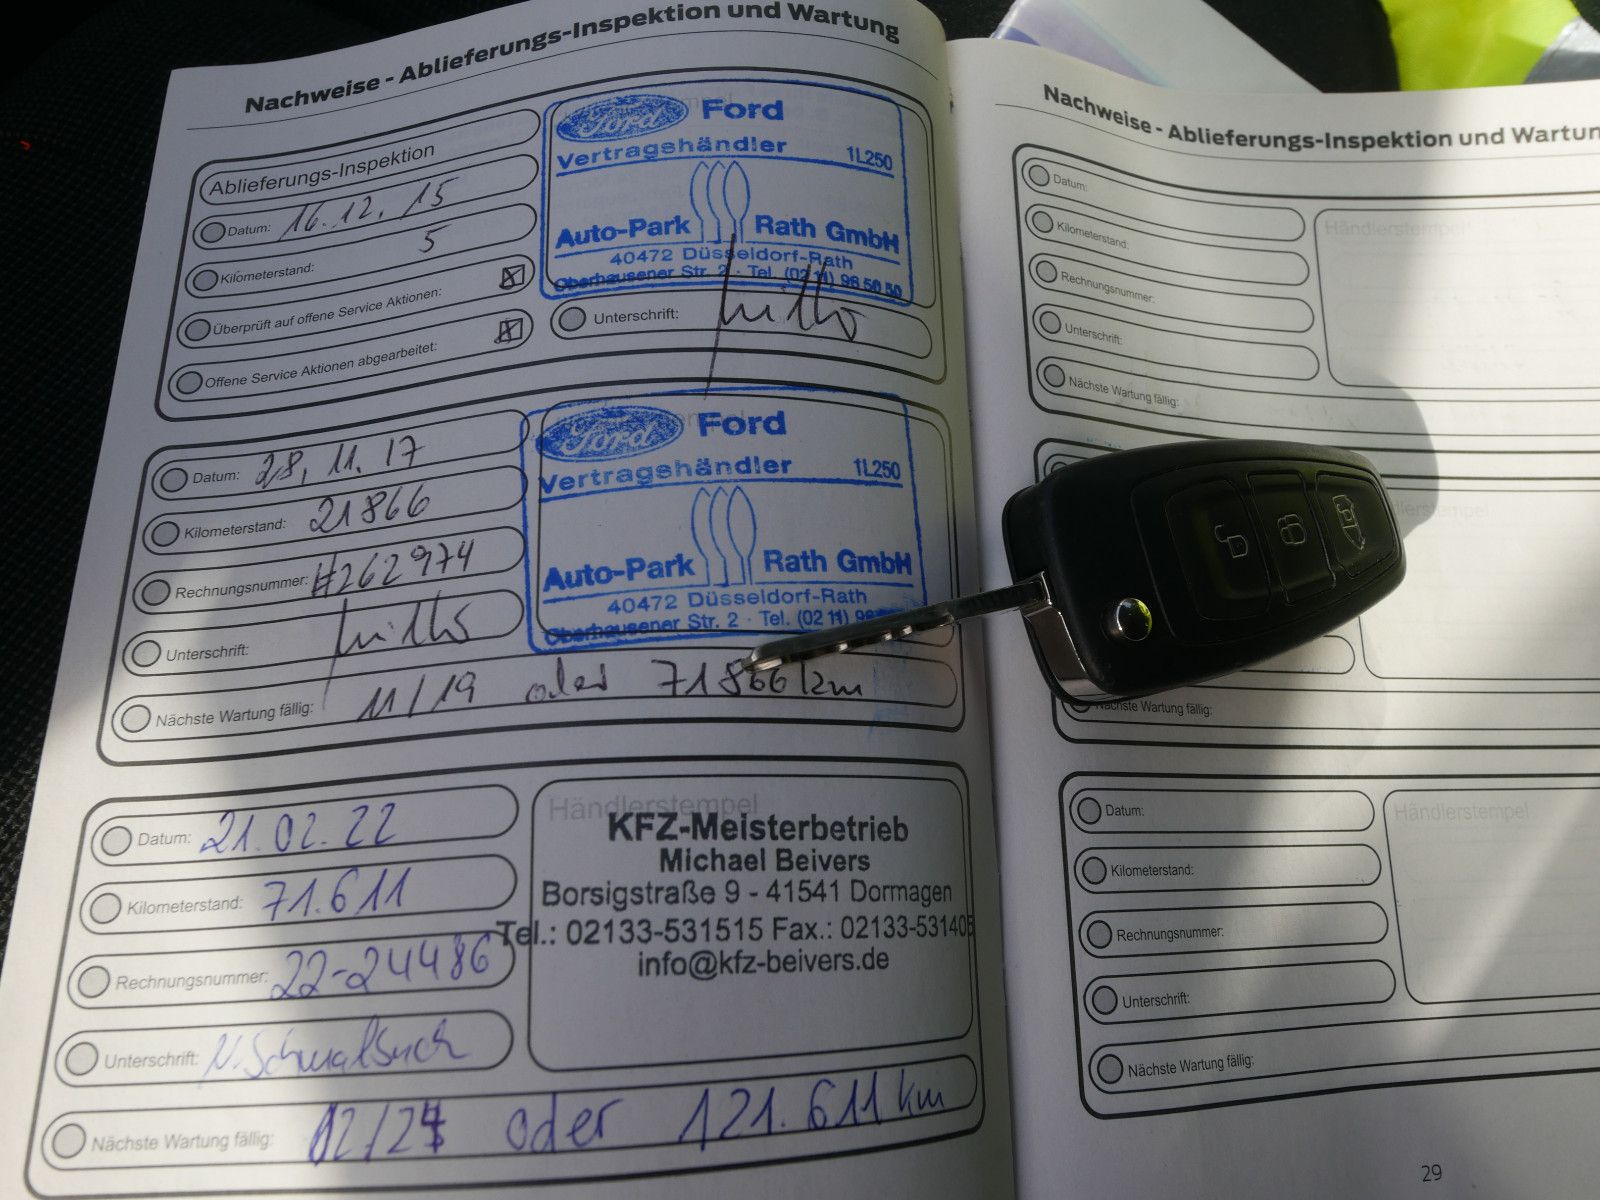 Nachweise - Ablieferungs-Inspektion und Wartung
Ablieferungs-Inspektion
Datum: 16.12.15
Kilometerstand: 5
Überprüft auf offene Service Aktionen:
Offene Service Aktionen abgearbeitet:
Ford
Ford
Vertragshändler 1L250
Auto-Park Rath GmbH
40472 Düsseldorf-Rath
Oberhausener Str. 2 · Tel. (0211) 96 50 50
Unterschrift:
Datum: 28.11.17
Kilometerstand: 21866
Rechnungsnummer: #262974
Unterschrift:
Nächste Wartung fällig: 11/19 oder 71866 km
Ford
Ford
Vertragshändler 1L250
Auto-Park Rath GmbH
40472 Düsseldorf-Rath
Oberhausener Str. 2 · Tel. (0211) 96
Datum: 21.02.22
Kilometerstand: 71.611
Rechnungsnummer: 22-24486
Unterschrift:
Nächste Wartung fällig: 02/24 oder 121.611 km
Händlerstempel
KFZ-Meisterbetrieb
Michael Beivers
Borsigstraße 9 - 41541 Dormagen
Tel.: 02133-531515 Fax.: 02133-531405
info@kfz-beivers.de
Nachweise - Ablieferungs-Inspektion und Wartun
Datum:
Kilometerstand:
Rechnungsnummer:
Unterschrift:
Nächste Wartung fällig:
Händlerstempel
Nächste Wartung fällig:
Datum:
Kilometerstand:
Rechnungsnummer:
Unterschrift:
Nächste Wartung fällig:
Händlerstempel
29